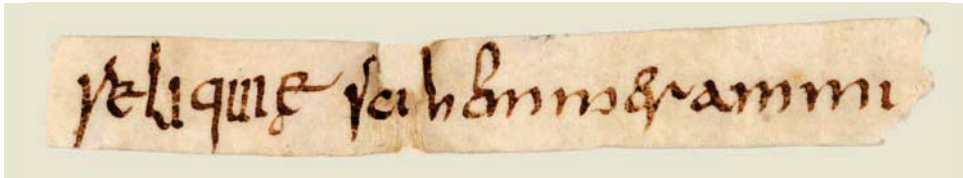 reliquię sci hemmerammi